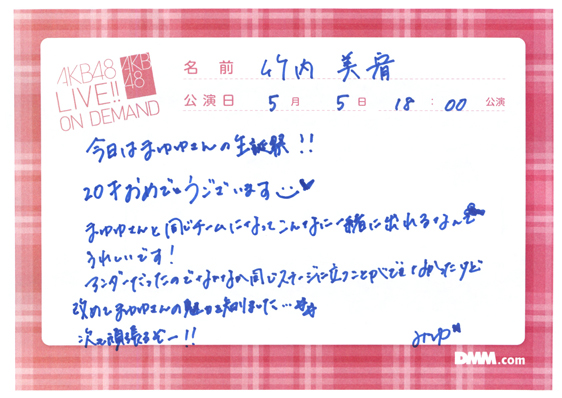 AKB48
LIVE!!
ON DEMAND
AKB
48
名前 竹内 美宥
公演日 5月 5日 18:00 公演
今日はまゆゆさんの生誕祭!!
20才おめでとうございます
まゆゆさんと同じチームになってこんなに一緒に出れるなんて
うれしいです!
アンダーだったのでなかなか同じステージに立つことができなかったけど
改めてまゆゆさんの魅力を知りました...
次も頑張るぞー!!
DMM.com